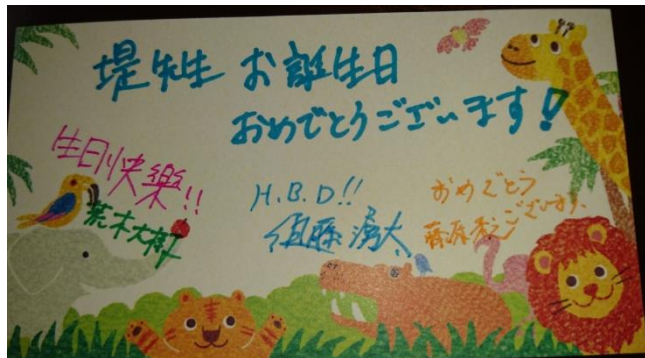 堤先生 お誕生日
おめでとうございます!
生日快樂!!
荒木大樹
H.B.D!!
佐藤
おめでとう
ございます